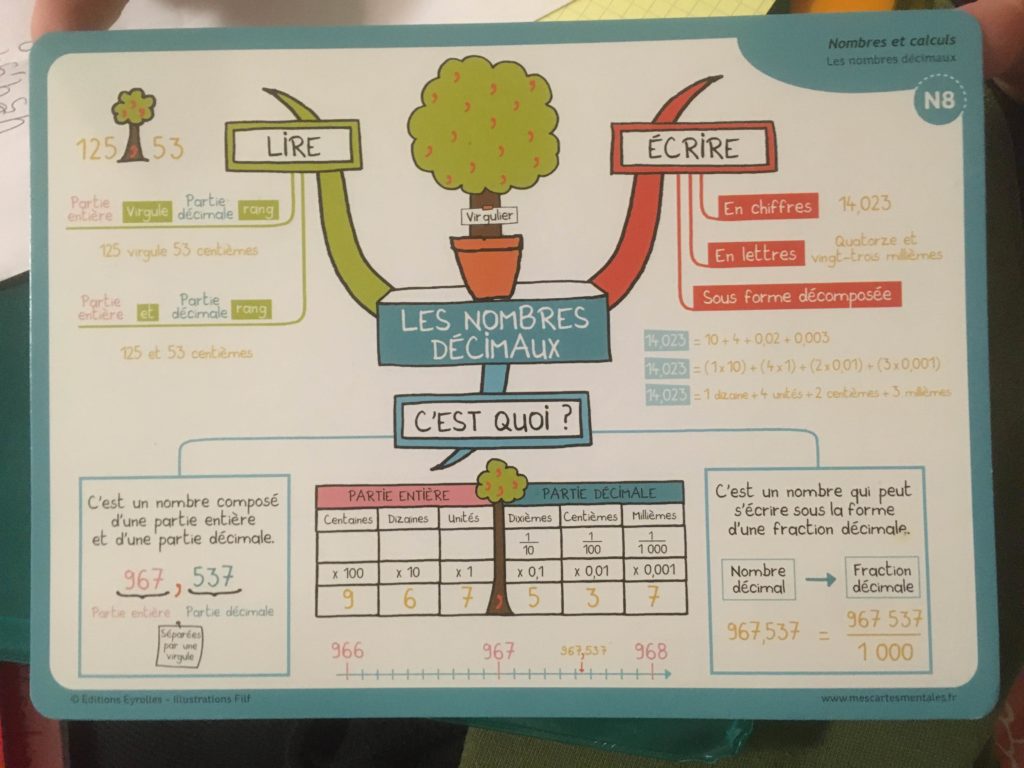 Nombres et calculs
Les nombres décimaux
N8
125 , 53
LIRE
Partie entière Virgule Partie décimale rang
125 virgule 53 centièmes
Partie entière et Partie décimale rang
125 et 53 centièmes
Virgulier
LES NOMBRES
DÉCIMAUX
ÉCRIRE
En chiffres 14,023
En lettres Quatorze et
vingt-trois millièmes
Sous forme décomposée
14,023 = 10 + 4 + 0,02 + 0,003
14,023 = (1 x 10) + (4 x 1) + (2 x 0,01) + (3 x 0,001)
14,023 = 1 dizaine + 4 unités + 2 centièmes + 3 millièmes
C'EST QUOI ?
C'est un nombre composé
d'une partie entière
et d'une partie décimale.
967 , 537
Partie entière Partie décimale
Séparées
par une
virgule
PARTIE ENTIÈRE PARTIE DÉCIMALE
Centaines Dizaines Unités Dixièmes Centièmes Millièmes
1/10 1/100 1/1 000
x 100 x 10 x 1 x 0,1 x 0,01 x 0,001
9 6 7 , 5 3 7
966 967 967,537 968
C'est un nombre qui peut
s'écrire sous la forme
d'une fraction décimale.
Nombre décimal → Fraction décimale
967,537 = 967 537/1 000
© Éditions Eyrolles - Illustrations Filf
www.mescartesmentales.fr